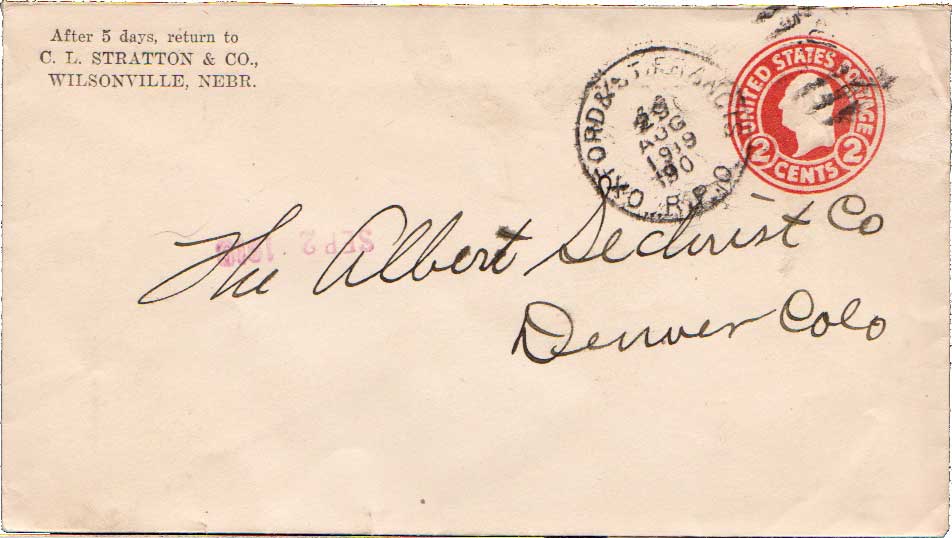 After 5 days, return to
C. L. STRATTON & CO.,
WILSONVILLE, NEBR.
OXFORD & ST. FRANCIS
29
AUG
1919
R.P.O.
UNITED STATES POSTAGE
2 CENTS 2
SEP 2
The Albert Sechrist Co
Denver Colo